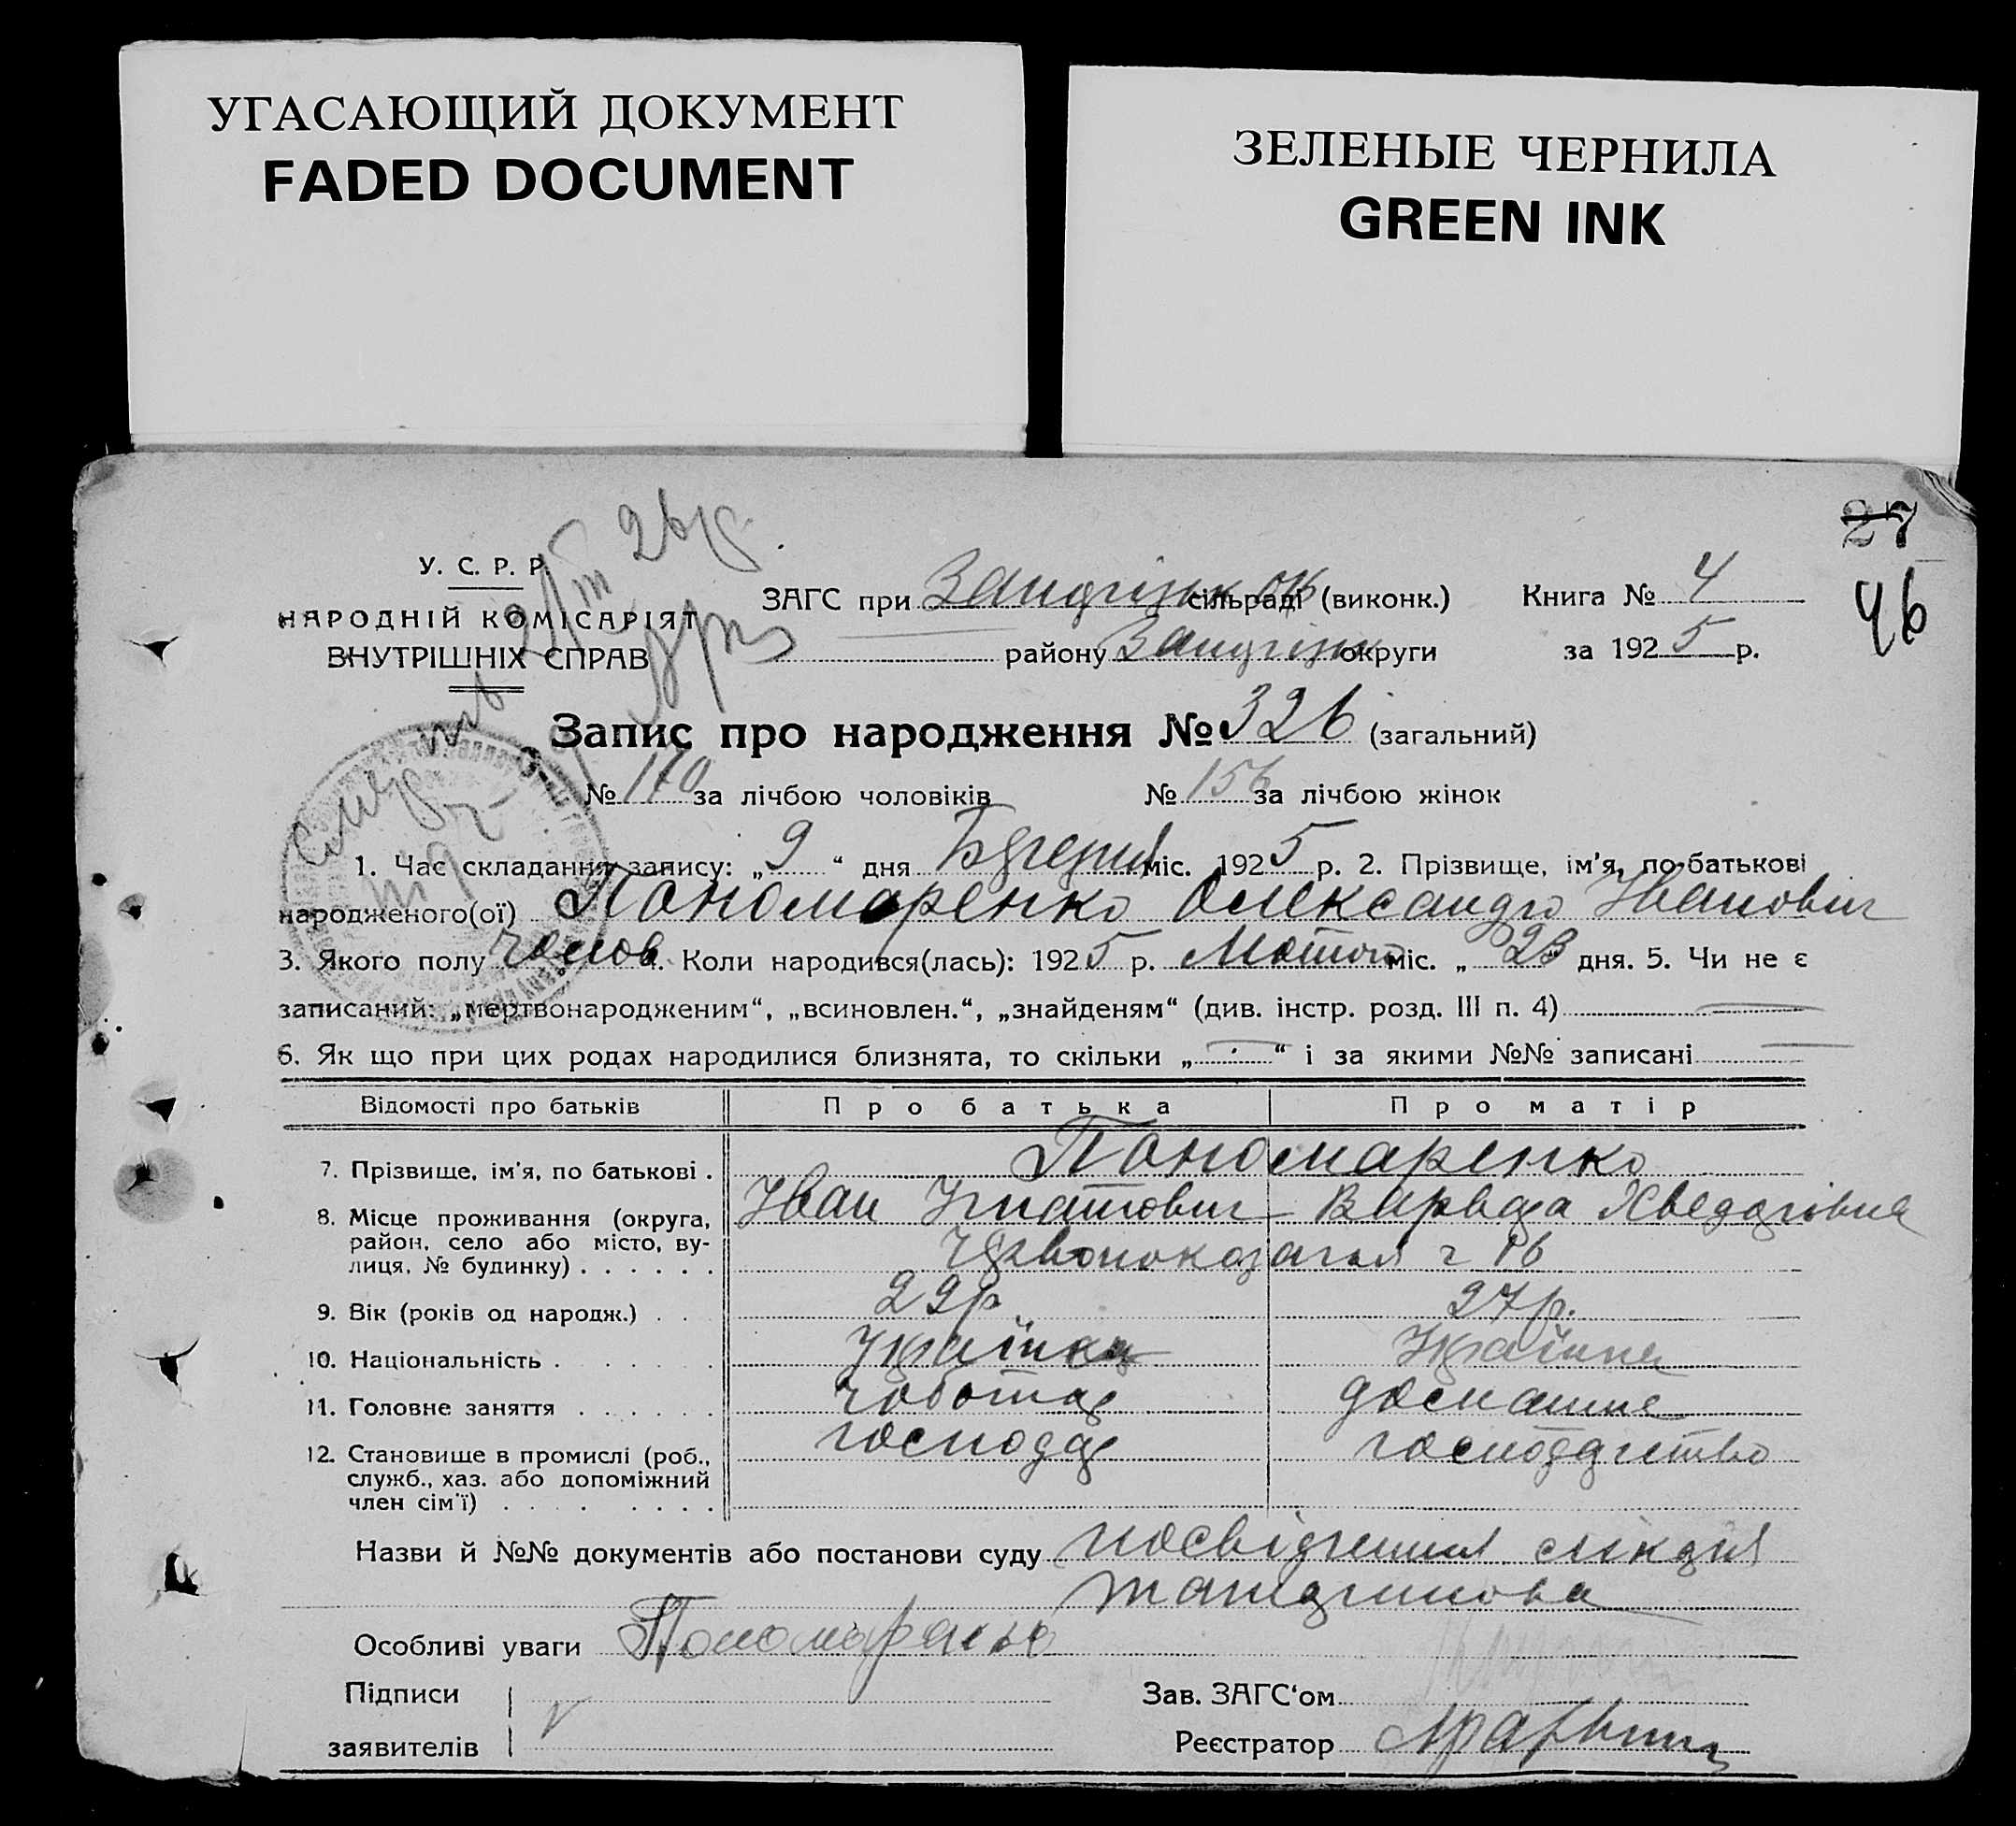 УГАСАЮЩИЙ ДОКУМЕНТ
FADED DOCUMENT
ЗЕЛЕНЫЕ ЧЕРНИЛА
GREEN INK
27
46
У. С. Р. Р.
НАРОДНІЙ КОМІСАРІЯТ
ВНУТРІШНІХ СПРАВ
ЗАГС при сільраді (виконк.)
району округи
Книга № 4
за 1925 р.
Запис про народження № 326 (загальний)
№ 170 за лічбою чоловіків № 156 за лічбою жінок
1. Час складання запису: „ 9 “ дня міс. 1925 р. 2. Прізвище, ім'я, по-батькові
народженого(ої) Пономаренко Олександр Іванович
3. Якого полу чолов. Коли народився(лась): 1925 р. міс. „ 23 дня. 5. Чи не є
записаний: „мертвонародженим“, „всиновлен.“, „знайденям“ (див. інстр. розд. III п. 4)
6. Як що при цих родах народилися близнята, то скільки „ “ і за якими №№ записані
Відомості про батьків Про батька Про матір
7. Прізвище, ім'я, по батькові . Пономаренко
Іван Гнатович Варвара Хведорівна
8. Місце проживання (округа,
район, село або місто, ву-
лиця, № будинку) . . . . . .
9. Вік (років од народж.) . . 29р 27р.
10. Національність . . . . . . Українец Українка
11. Головне заняття . . . . . . чоботар домашне
господар господарство
12. Становище в промислі (роб.,
служб., хаз. або допоміжний
член сім'ї) . . . . . . . .
Назви й №№ документів або постанови суду посвідчення
Особливі уваги Пономаренко
Підписи
заявителів
Зав. ЗАГС‘ом
Реєстратор